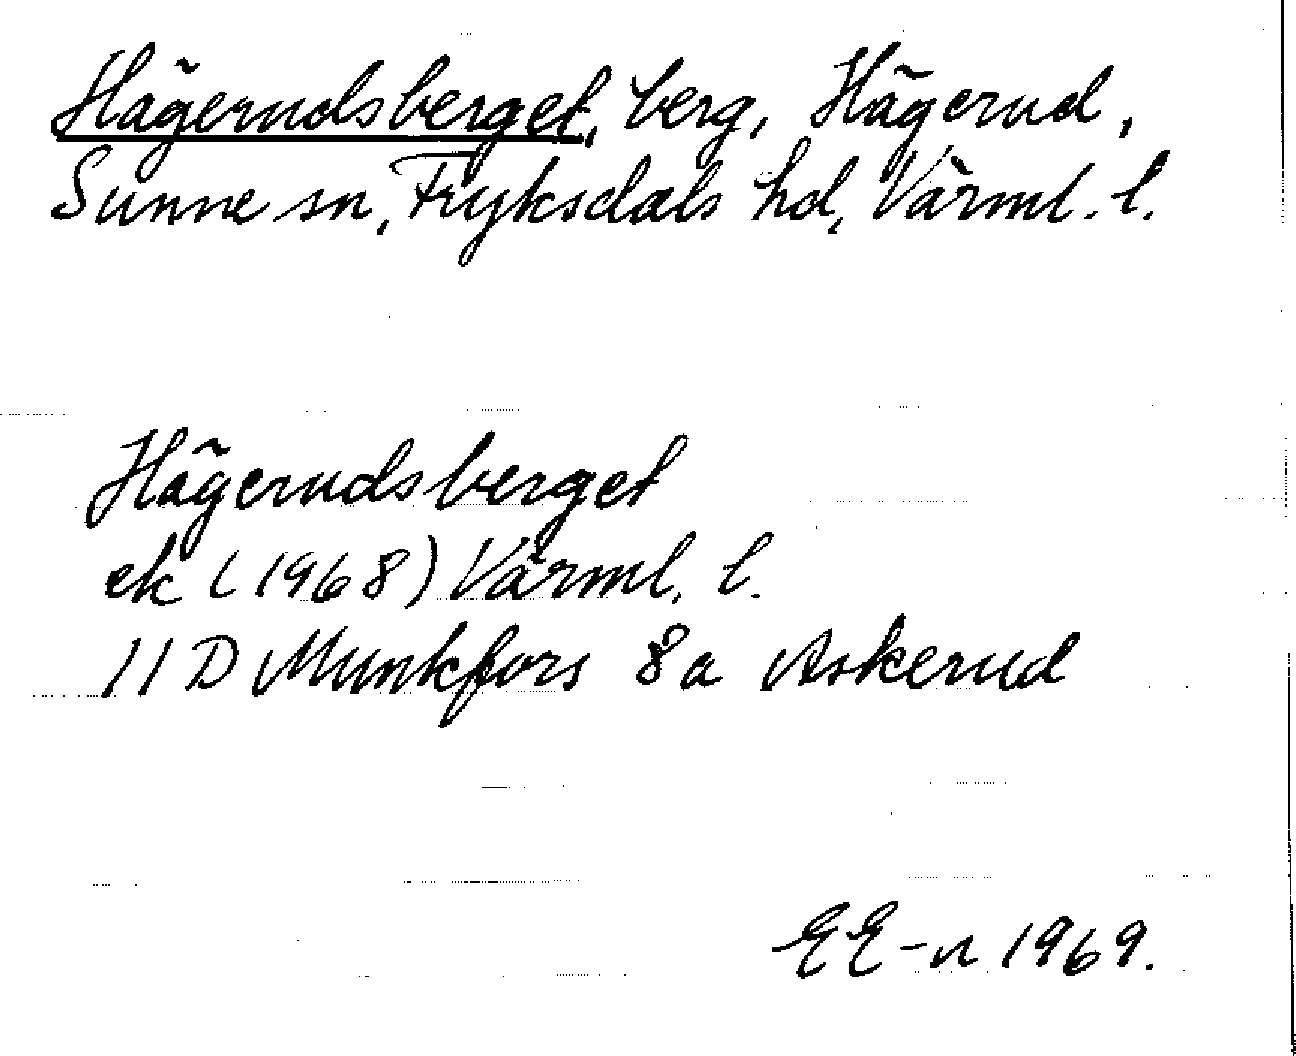 Hägerudsberget, berg, Hägerud,
Sunne sn, Fryksdals hd, Värml. l.
Hägerudsberget
ek (1968) Värml. l.
11 D Munkfors 8a Askerud
EE-n 1969.